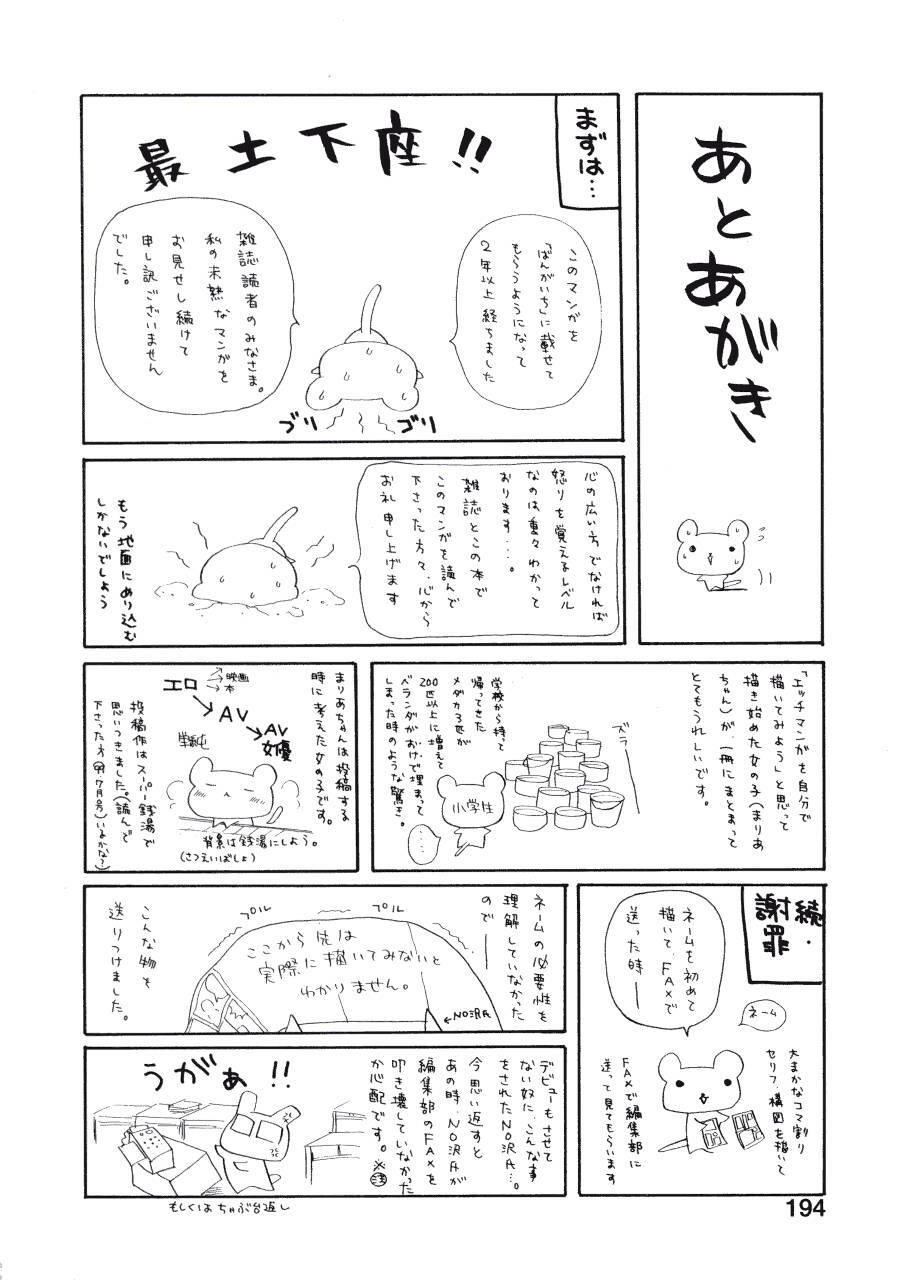 あとあがき
まずは…
最土下座!!
このマンガを
「ばんがいち」に載せて
もらうようになって
2年以上経ちました
雑誌読者のみなさま。
私の未熟なマンガを
お見せし続けて
申し訳ございません
でした。
ゴリ
ゴリ
心の広い方でなければ
怒りを覚えるレベル
なのは重々わかって
おります…。
雑誌とこの本で
このマンガを読んで
下さった方々、心から
お礼申し上げます
もう地面にめり込む
しかないでしょう
「エッチマンガを自分で
描いてみよう」と思って
描き始めた女の子(まりあ
ちゃん)が、一冊にまとまって
とてもうれしいです。
ズラー
学校から持って
帰ってきた
メダカ3匹が
200匹以上に増えて
ベランダがおけで埋まって
しまった時のような驚き。
小学生
……
まりあちゃんは投稿する
時に考えた女の子です。
エロ
映画
本
AV
AV
女優
背景は銭湯にしよう。
(さつえいばしょ)
投稿作はスーパー銭湯で
思いつきました。(読んで
下さった方
7月号)いるかな?
続・
謝罪
ネームを初めて
描いて、FAXで
送った時―
ネーム
大まかなコマ割り
セリフ、構図を描いて
FAXで編集部に
送って見てもらいます
ネームの必要性を
理解していなかった
ので――
プル
プル
ここから先は
実際に描いてみないと
わかりません。
←NO沢氏
こんな物を
送りつけました。
デビューもさせて
ない奴に、こんな事
をされたNO沢氏…。
今思い返すと
あの時、NO沢氏が
編集部のFAXを
叩き壊していなかった
か心配です。※注
うがぁ!!
もしくはちゃぶ台返し
194